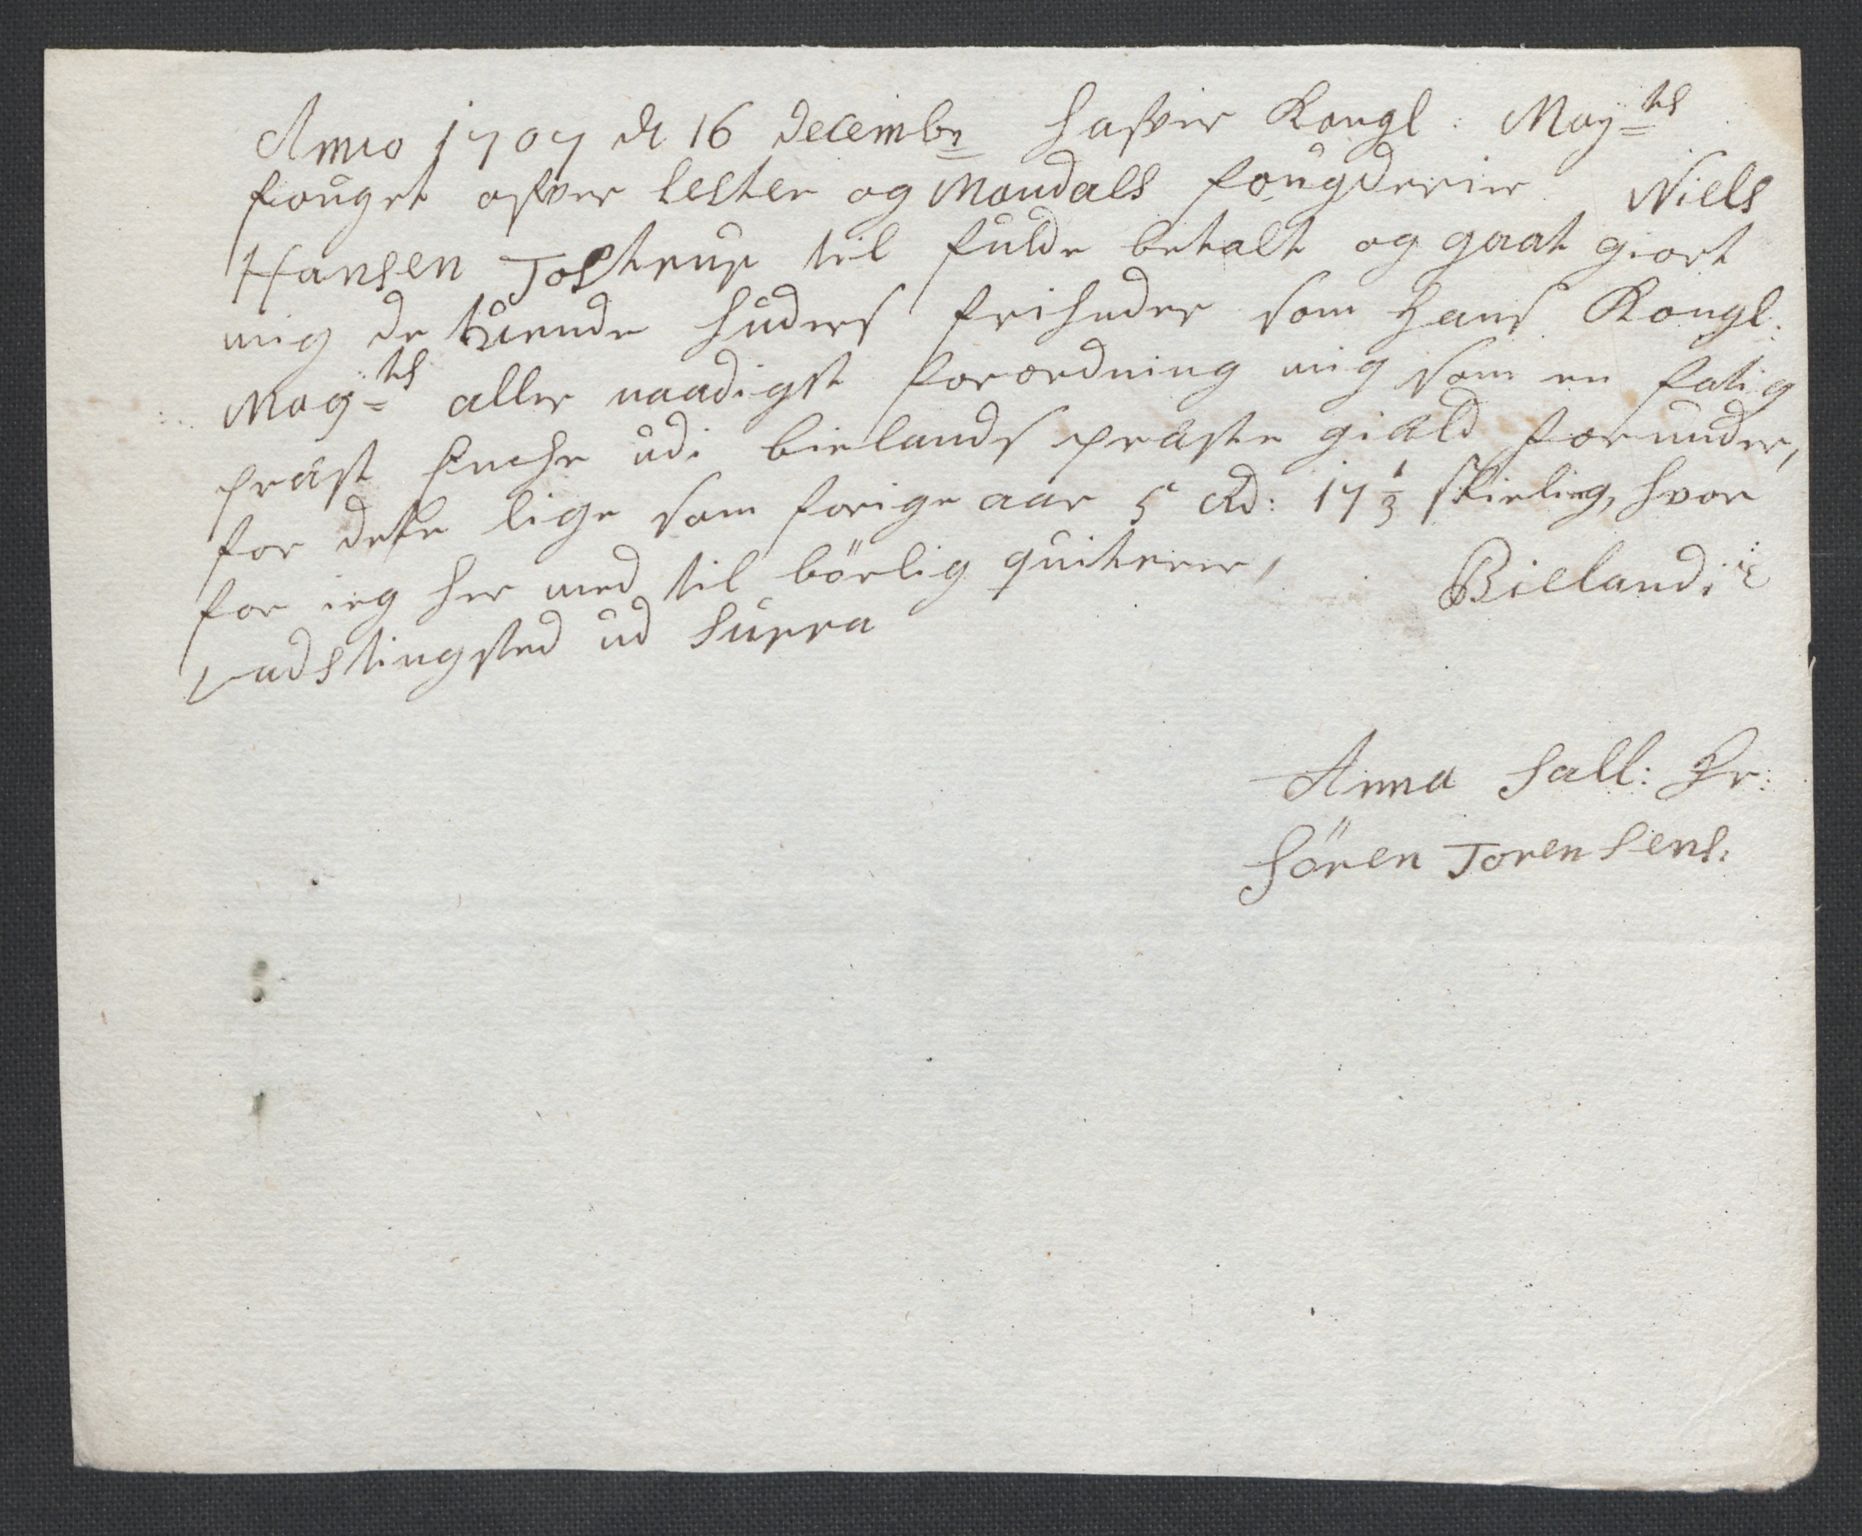 Anno 1707 d 16 decembr hafver Kongl: May=ts
fouget ofver lester og Mandals fougderier Niels
Hansen Tostrup til fulde betalt og gaat giort
mig de tuende huders frihuder som Hans Kongl:
May=ts aller naadigst forordning mig som en fatig
præst Enche udi bielands præste gield forunder,
for dete lige som forige aar 5 Rd: 17 1/3 skieling, hvor
for ieg her med til börlig quiterer, Bielandi
vadstingsted ud supra
Anna Sall: Hr:
Sören Torensens: